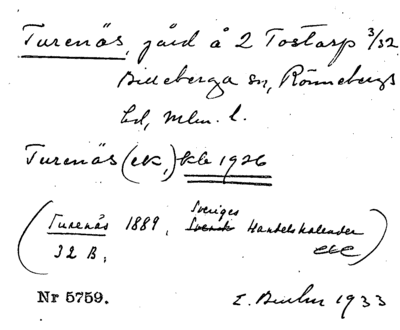 Turenäs, gård å 2 Tostarp 3/32
Billeberga sn, Rönnebergs
hd, Mlm. l.
Turenäs (ek,) kbl 1926
(Turenäs 1889, Sveriges Handelskalender
32 B,
Nr 5759. E. 1933